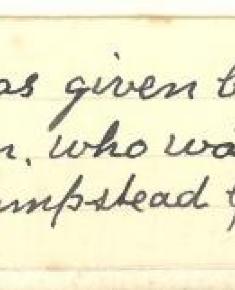 as given b
n. who wa
mpstead